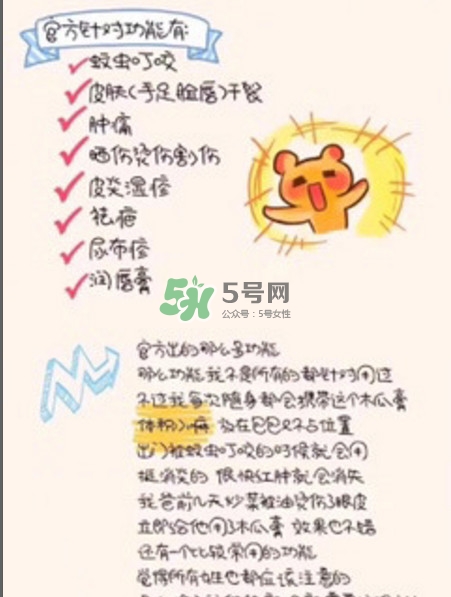 官方针对功能有:
蚊虫叮咬
皮肤(手足脸唇)干裂
肿痛
晒伤烫伤割伤
皮炎湿疹
祛疤
尿布疹
润唇膏
5号网
公众号:5号女性
官方出的那么多功能
那么功能我不是所有的都针对用过
不过我每次随身都会携带这个木瓜膏
体积小嘛 放在包包又不占位置
出门被蚊虫叮咬的时候就会用
挺消炎的 很快红肿就会消失
我爸前几天炒菜被油烫伤了眼皮
立即给他用了木瓜膏 效果也不错
还有一个比较常用的功能
觉得所有女性也都应该注意的